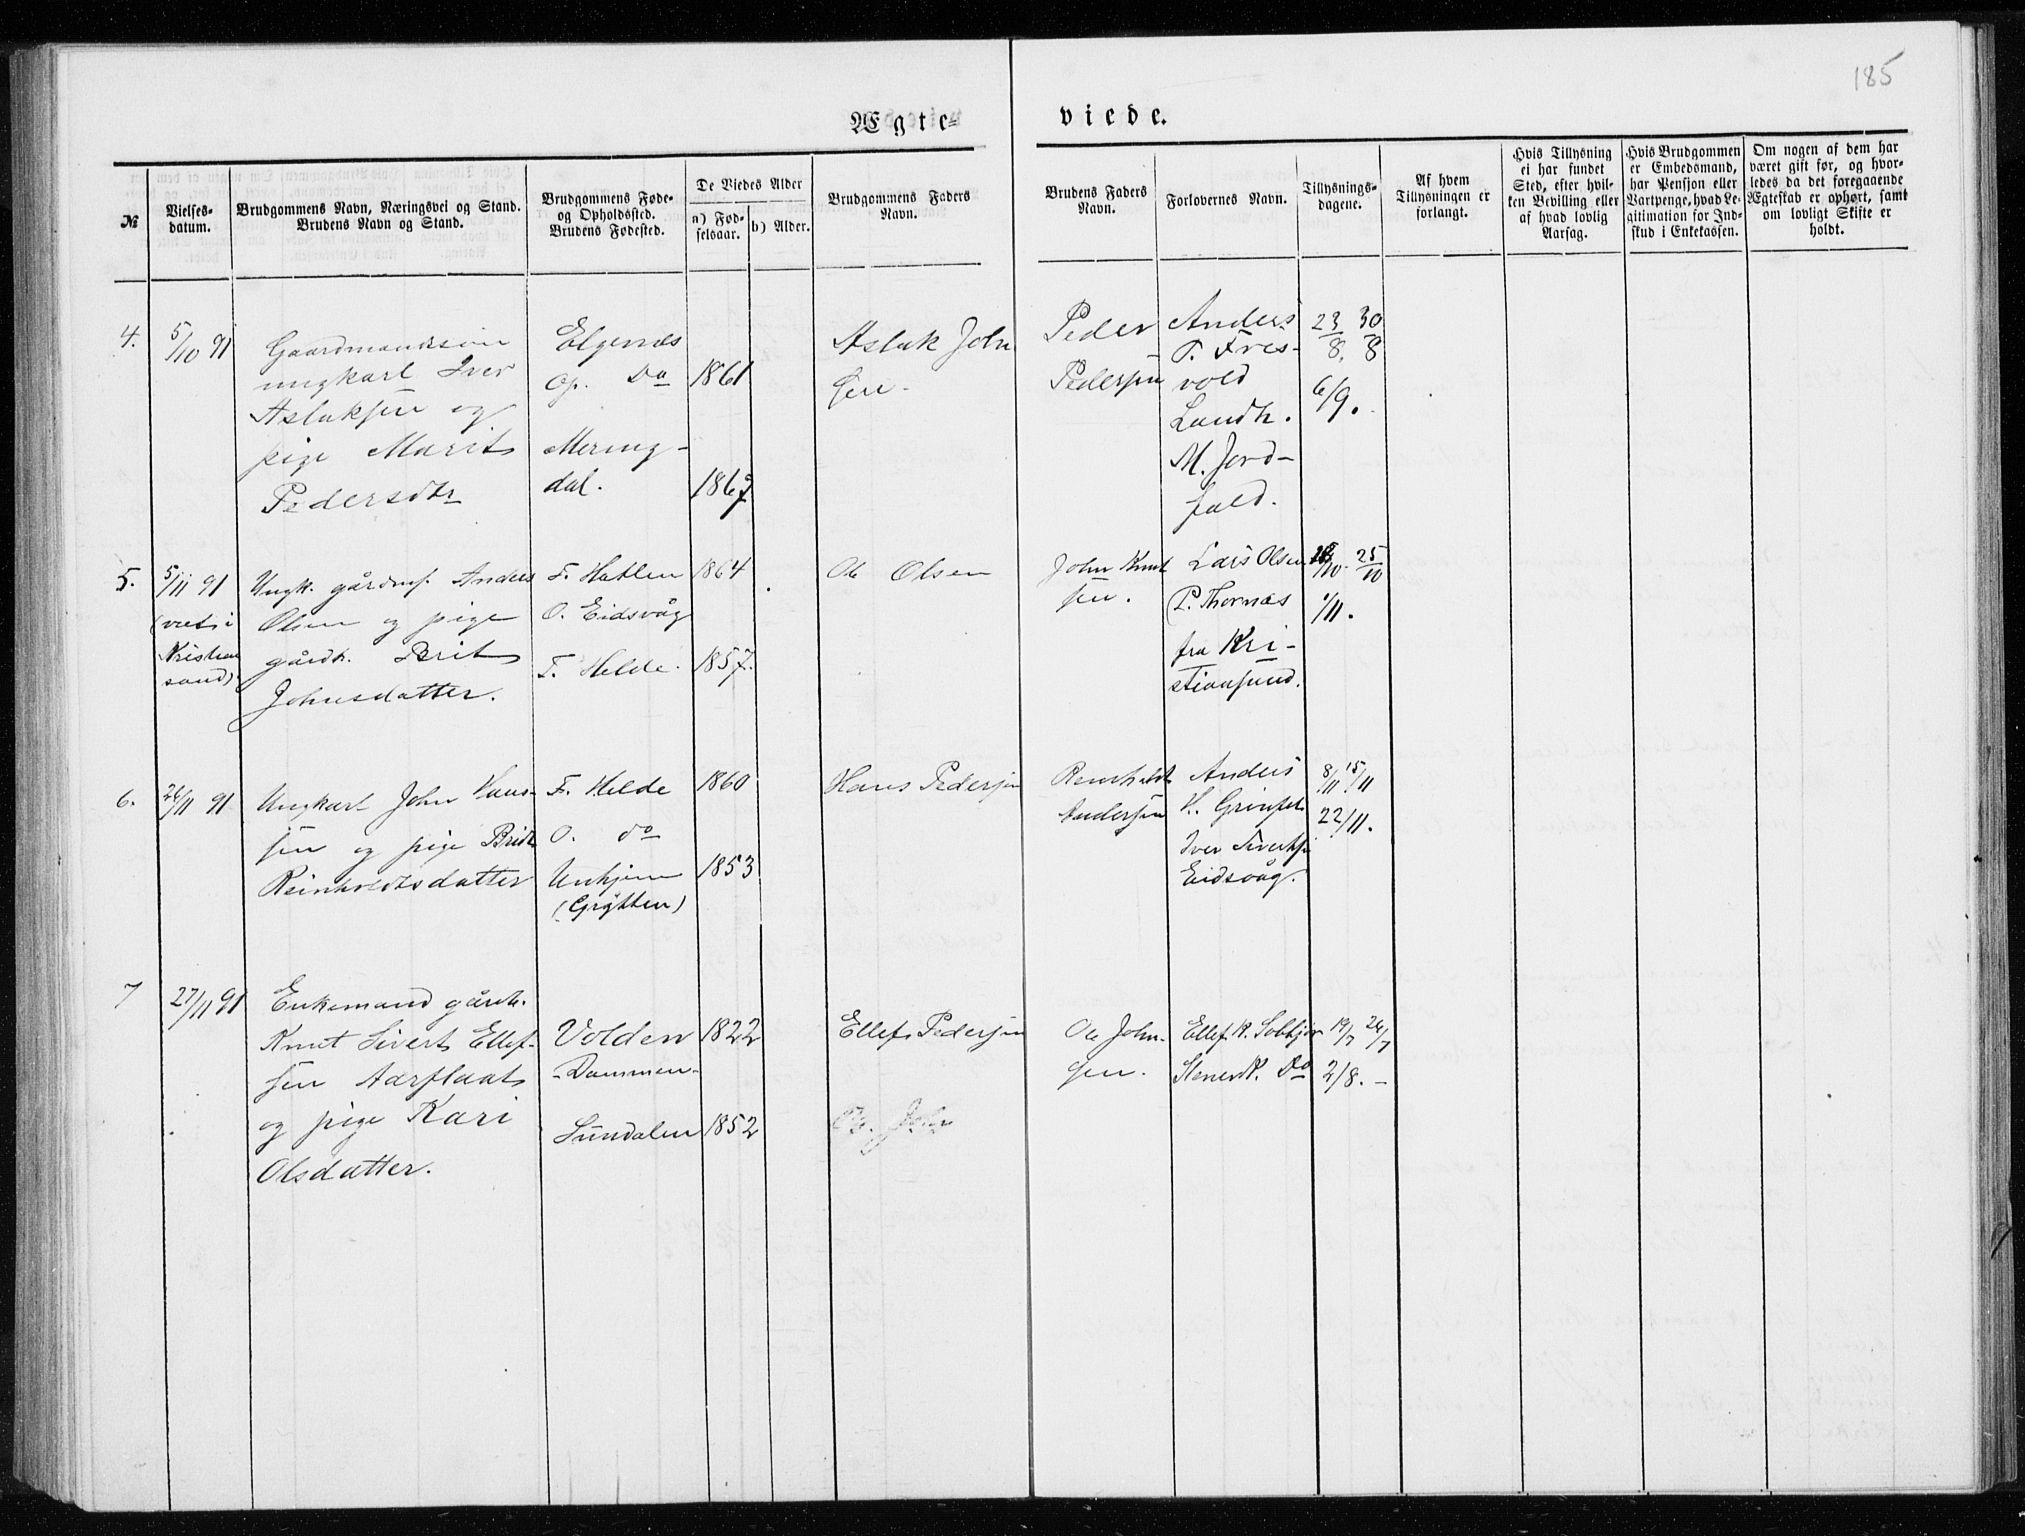 185
Ægte=
viede.
№
Vielses-
datum.
Brudgommens Navn, Næringsvei og Stand.
Brudens Navn og Stand.
Brudgommens Føde-
og Opholdssted.
Brudens Fødested.
De Viedes Alder
a) Fød-
selsaar.
b) Alder.
Brudgommens Faders
Navn.
Brudens Faders
Navn.
Forlovernes Navn.
Tillysnings-
dagene.
Af hvem
Tillysningen er
forlangt.
Hvis Tillysning
ei har fundet
Sted, efter hvil-
ken Bevilling eller
af hvad lovlig
Aarsag.
Hvis Brudgommen
er Embedsmand,
har Pension eller
Vartpenge, hvad Le-
gitimation for Ind-
skud i Enkekassen.
Om nogen af dem har
været gift før, og hvor-
ledes da det foregaaende
Ægteskab er ophørt, samt
om lovligt Skifte er
holdt.
4.
5/10 91
Gaardmandssøn
ungkarl Iver
Aslaksen og
pige Marit
Pedersdtr
Elgenæs
Op. Do
Mering-
dal.
1861
1867
Aslak John
sen.
Peder
Pedersen
Anders
P. Fres-
vold
Landh.
M. Jord-
fald.
23/8. 30/8
6/9.
5.
5/11 91
(viet i
Kristian
sund)
Ungk. gårdmf. Anders
Olsen og pige
gårdh. Brit
Johnsdatter.
F. Hatlen
O. Eidsvåg
F. Helde.
1864
1857.
Ole Olsen
John Knut
sen.
Lars Olsen
P. Thornæs
fra Kri-
stiansund.
25/10
1/11.
6.
26/11 91
Ungkarl John Hans-
sen og pige Brit
Reinholdtsdatter
F. Helde
O. do
Unhjem
(Grytten)
1860
1853
Hans Pedersen
Reinholdt
Andersen
Anders
H. Grinset
Iver Sivertsen
Eidsvåg.
8/11 15/11
22/11.
7
27/11 91
Enkemand gårdh.
Knut Sivert Ellef-
sen Aarflaat
og pige Kari
Olsdatter.
Volden
-Dammen-
Sundalen
1822
1852
Ellef Pedersen
O. John
Ole John-
sen.
Ellef K. Solhjør
Stener K. Do
19/7 26/7
2/8. -